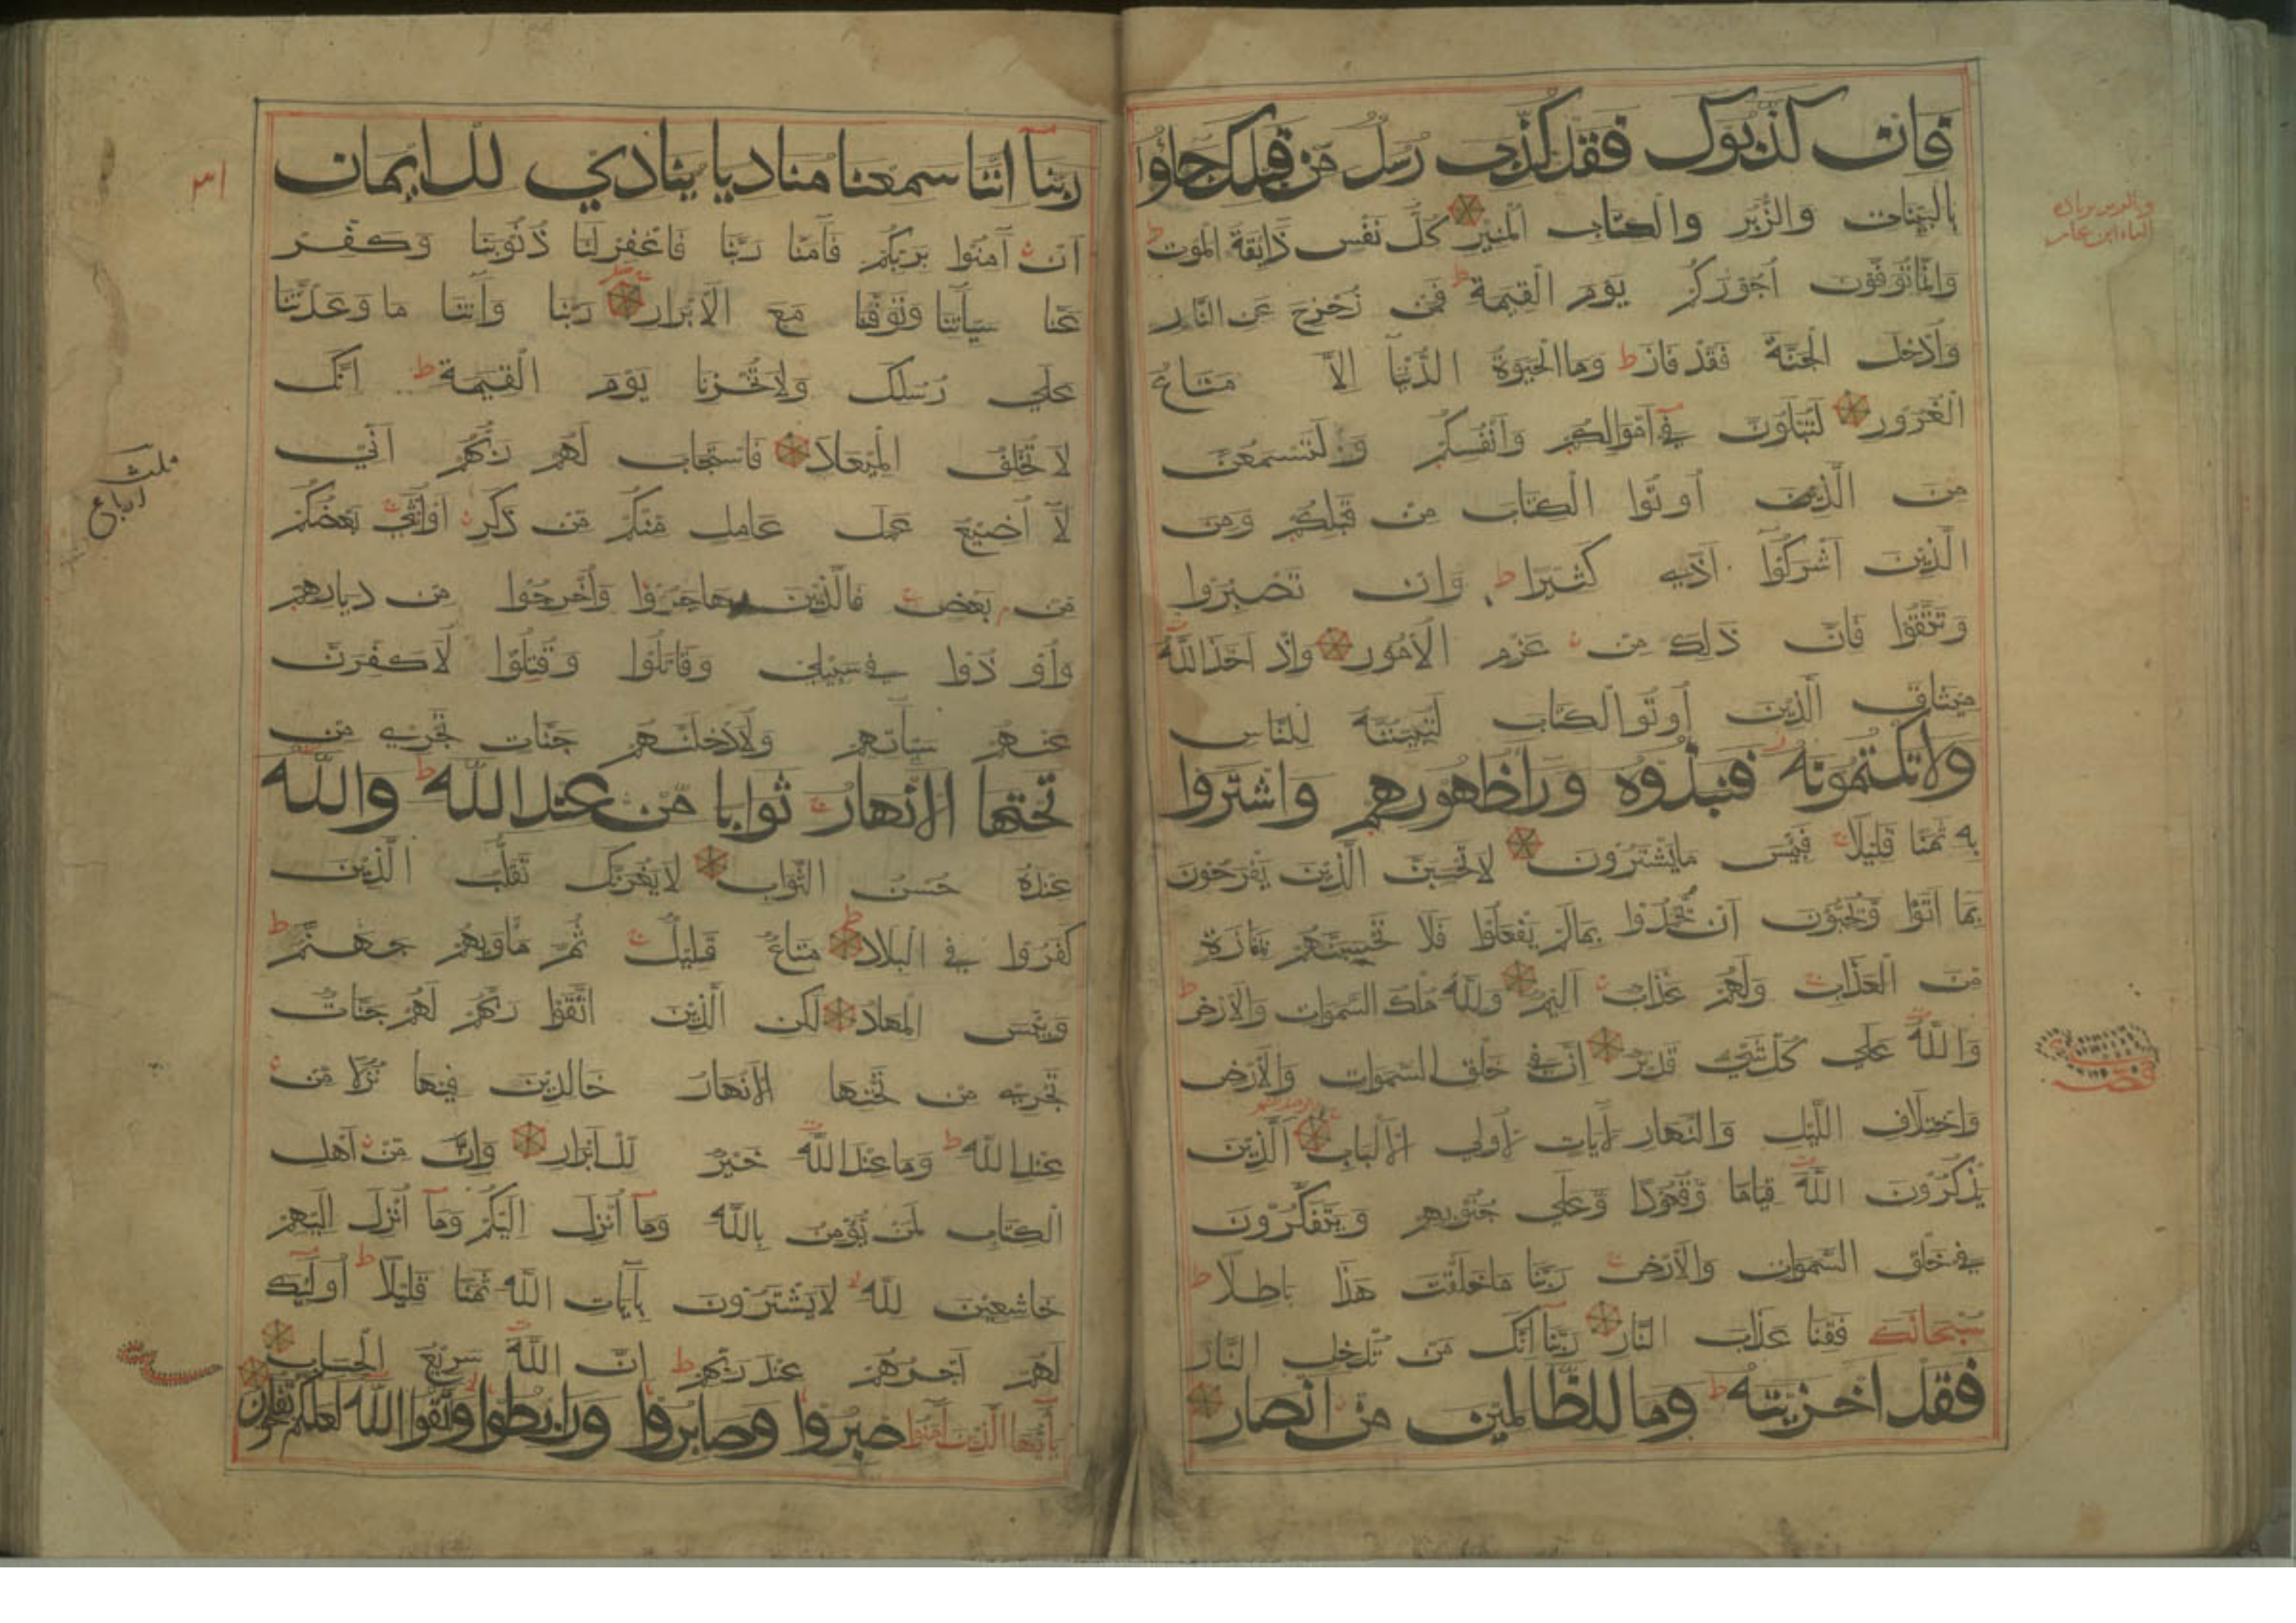 فان كذبوك فقد كذب رسل من قبلك جاؤا
بالبينات والزبر والكتاب المنير كل نفس ذائقة الموت ط
وانما توفون اجوركم يوم القيمة ط فمن زحزح عن النار
وادخل الجنة فقد فاز ط وما الحيوة الدنيا الا متاع
الغرور لتبلون في اموالكم وانفسكم ولتسمعن
من الذين اوتوا الكتاب من قبلكم ومن
الذين اشركوا اذي كثيرا ط وان تصبروا
وتتقوا فان ذلك من عزم الامور واذ اخذ الله
ميثاق الذين اوتوا الكتاب لتبيننه للناس
ولا تكتمونه فنبذوه وراء ظهورهم واشتروا
به ثمنا قليلا فبئس ما يشترون لا تحسبن الذين يفرحون
بما اتوا ويحبون ان يحمدوا بما لم يفعلوا فلا تحسبنهم بمفازة
من العذاب ولهم عذاب اليم ولله ملك السموات والارض ط
والله علي كل شيء قدير ان في خلق السموات والارض
واختلاف الليل والنهار لآيات لاولي الالباب الذين
يذكرون الله قياما وقعودا وعلي جنوبهم ويتفكرون
في خلق السموات والارض ربنا ما خلقت هذا باطلا ط
سبحانك فقنا عذاب النار ربنا انك من تدخل النار
فقد اخزيته ط وما للظالمين من انصار
ربنا اننا سمعنا مناديا ينادي للايمان
ان آمنوا بربكم فآمنا ربنا فاغفر لنا ذنوبنا وكفر
عنا سيآتنا وتوفنا مع الابرار ربنا وآتنا ما وعدتنا
علي رسلك ولا تخزنا يوم القيمة ط انك
لا تخلف الميعاد فاستجاب لهم ربهم اني
لا اضيع عمل عامل منكم من ذكر او انثي بعضكم
من بعض فالذين هاجروا واخرجوا من ديارهم
واوذوا في سبيلي وقاتلوا وقتلوا لاكفرن
عنهم سيآتهم ولادخلنهم جنات تجري من
تحتها الانهار ثوابا من عند الله ط والله
عنده حسن الثواب لا يغرنك تقلب الذين
كفروا في البلاد متاع قليل ثم مأويهم جهنم ط
وبئس المهاد لكن الذين اتقوا ربهم لهم جنات
تجري من تحتها الانهار خالدين فيها نزلا من
عند الله ط وما عند الله خير للابرار وان من اهل
الكتاب لمن يؤمن بالله وما انزل اليكم وما انزل اليهم
خاشعين لله لا يشترون بآيات الله ثمنا قليلا ط اولئك
لهم اجرهم عند ربهم ط ان الله سريع الحساب
يا ايها الذين آمنوا اصبروا وصابروا ورابطوا واتقوا الله لعلكم تفلحون
ثلث
ارباع